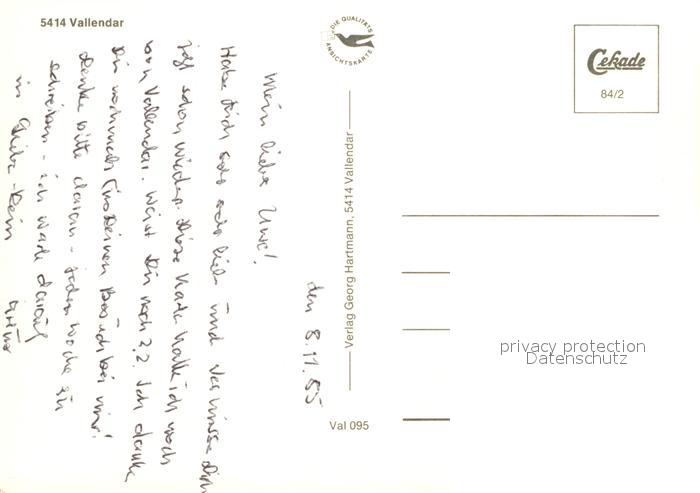 5414 Vallendar
DIE QUALITÄTS
ANSICHTSKARTE
Cekade
84/2
Verlag Georg Hartmann, 5414 Vallendar
Val 095
privacy protection
Datenschutz
den 8.11.85
Mein lieber Uwe!
Habe Dich sehr sehr lieb und vermisse Dich
jetzt schon wieder. Diese Karte hatte ich noch
von Vallendar. Weißt Du noch 2.2. Ich danke
Dir nochmals für Deinen Besuch bei mir!
Denke bitte daran - jeden Woche
schreiben - ich warte darauf
in Liebe - Dein